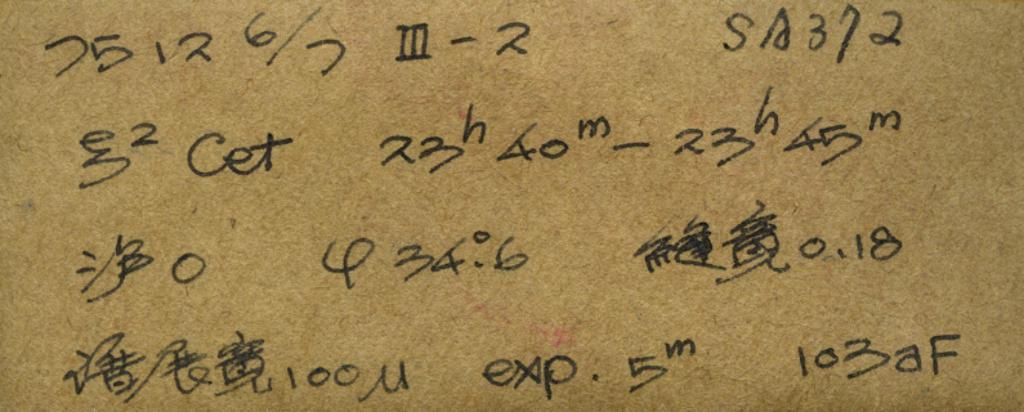 75 12 6/7 III-2 SA372
ξ² Cet 23ʰ40ᵐ-23ʰ45ᵐ
净0 φ34°.6 缝宽0.18
谱展宽100μ exp. 5ᵐ 103aF